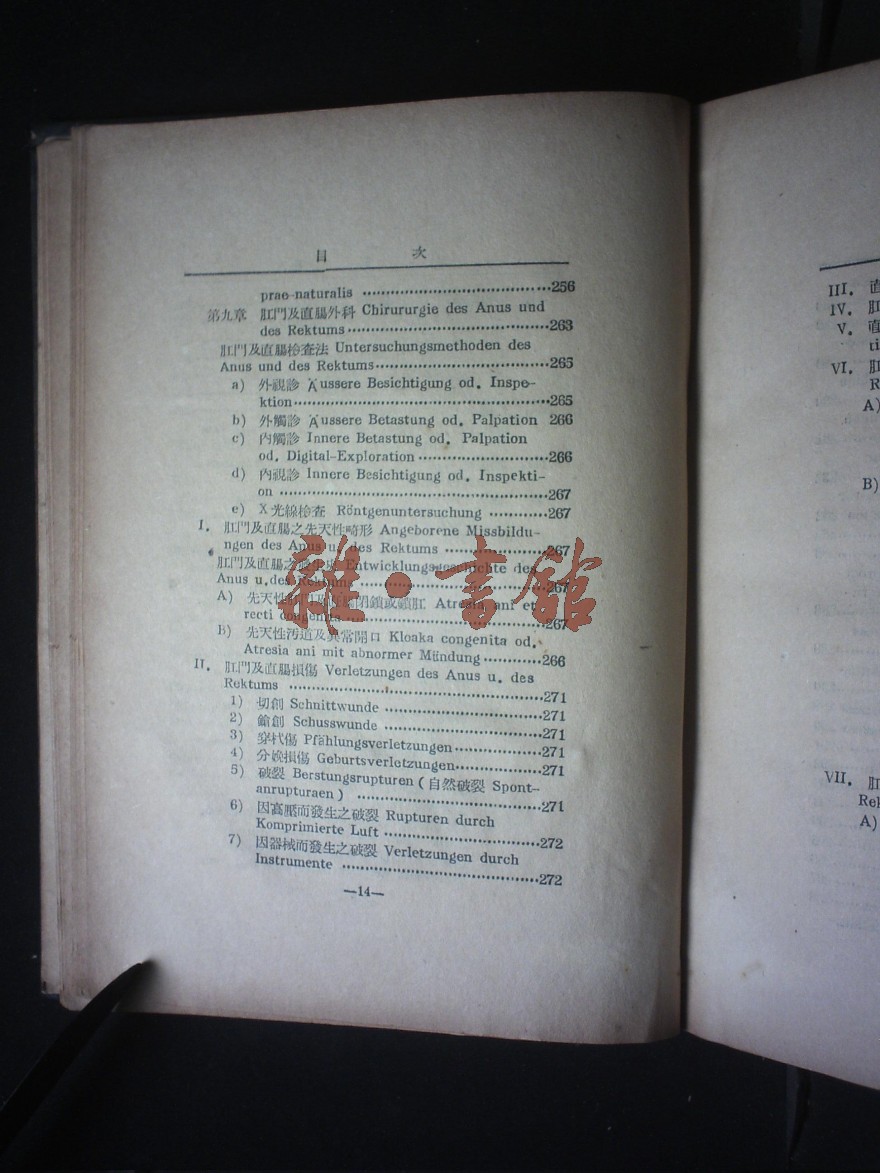 目 次
prae-naturalis ………………………256
第九章 肛門及直腸外科 Chirururgie des Anus und
des Rektums………………………263
肛門及直腸檢查法 Untersuchungsmethoden des
Anus und des Rektums………………………265
a) 外視診 Äussere Besichtigung od. Inspe-
ktion………………………265
b) 外觸診 Äussere Betastung od. Palpation 266
c) 內觸診 Innere Betastung od. Palpation
od. Digital-Exploration………………………266
d) 內視診 Innere Besichtigung od. Inspekti-
on………………………267
e) X光線檢查 Röntgenuntersuchung …………267
I. 肛門及直腸之先天性畸形 Angeborene Missbildu-
ngen des Anus u. des Rektums ……………267
肛門及直腸之發生史 Entwicklungsgeschichte des
Anus u. des Rektums………………………267
A) 先天性肛門及直腸閉鎖或鎖肛 Atresia ani et
recti congenita………………………267
B) 先天性污道及異常開口 Kloaka congenita od.
Atresia ani mit abnormer Mündung…………266
II. 肛門及直腸損傷 Verletzungen des Anus u. des
Rektums ………………………271
1) 切創 Schnittwunde ………………………271
2) 鎗創 Schusswunde ………………………271
3) 穿杙傷 Pfählungsverletzungen……………271
4) 分娩損傷 Geburtsverletzungen……………271
5) 破裂 Berstungsrupturen (自然破裂 Spont-
anrupturaen) ………………………271
6) 因高壓而發生之破裂 Rupturen durch
Komprimierte Luft………………………272
7) 因器械而發生之破裂 Verletzungen durch
Instrumente ………………………272
—14—
III. 直
IV. 肛
V. 直
ti
VI. 肛
R
A)
B)
VII. 肛
Rek
A)
雜·書館